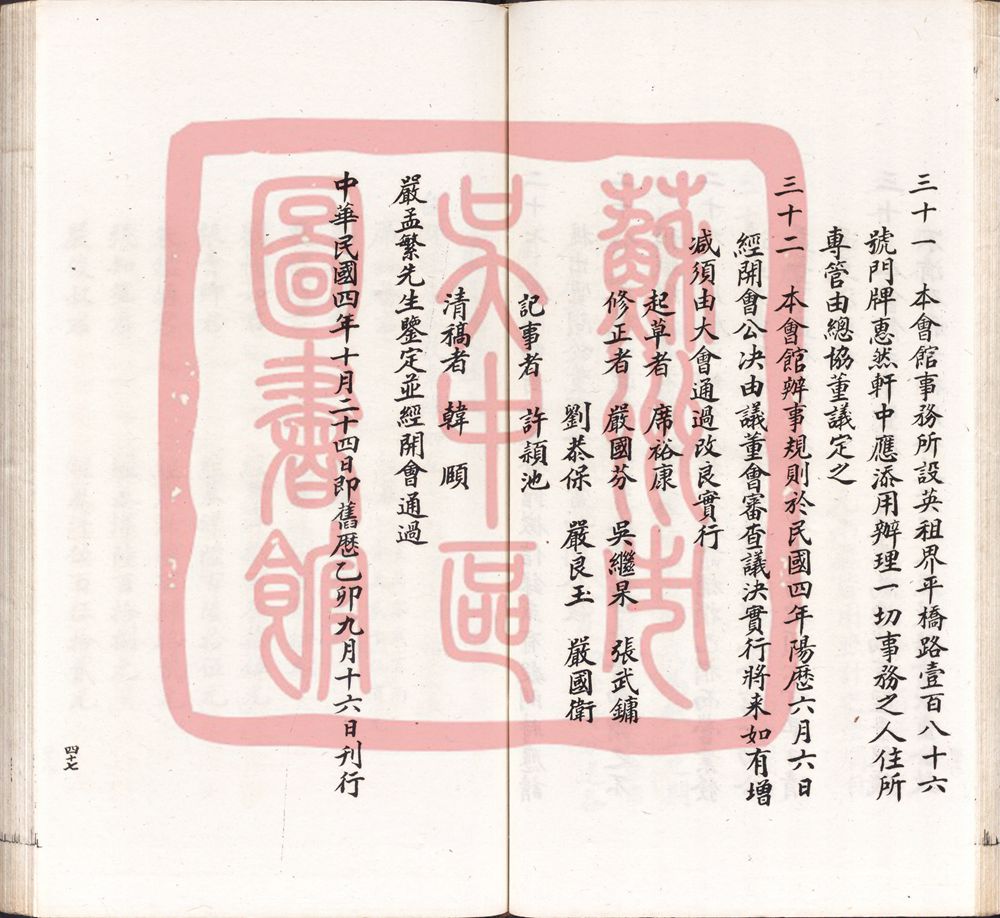 三十一　本會館事務所設英租界平橋路壹百八十六
號門牌惠然軒中應添用辦理一切事務之人住所
專管由總協董議定之
三十二　本會館辦事規則於民國四年陽歷六月六日
經開會公決由議董會審查議決實行將来如有增
減須由大會通過改良實行
起草者　席裕康
修正者　嚴國芬　吳繼杲　張武鏞
劉恭保　嚴良玉　嚴國衛
記事者　許潁池
清稿者　韓頤
嚴孟繁先生鑒定並經開會通過
中華民國四年十月二十四日即舊歷乙卯九月十六日刊行
四十七
蘇州市
吳中區
圖書館